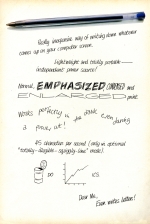 Really inexpensive way of writing down whatever
comes up on your computer screen.
Lightweight and totally portable –
independent power source!
Normal, EMPHASIZED, CONDENSED and
ENLARGED print.
Works perfectly in the dark even during
a power cut!
45 characters per second (only in optional
"totally-illegible-squiggly-line" mode)
DO
ICS.
Dear Me,
Even writes letters!